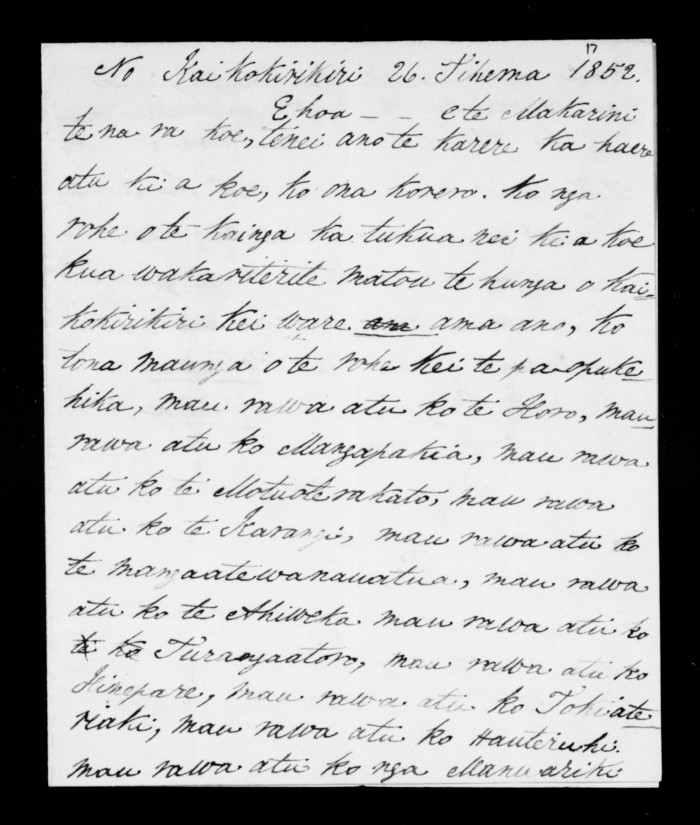 17
No Kaikokirikiri 26. Tihema 1852.
E hoa - - e te Makarini
te na ra koe, tenei ano te karere ka haere
atu ki a koe, ko ona korero. ko nga
rohe o te kainga ka tukua nei ki a koe
kua wakariterite matou te hunga o kai-
kokirikiri kei ware ama ano, ko
tona maunga o te rohe kei te pa-opuke-
hika, mau rawa atu ko te Horo, mau
rawa atu ko Mangapakia, mau rawa
atu ko te Motuoterakato, mau rawa
atu ko te Karangi, mau rawa atu ko
te mangaatewanauatua, mau rawa
atu ko te Ahiweka mau rawa atu ko
Turangaatoro, mau rawa atu ko
Hinepare, mau rawa atu ko Tohiate-
riaki, mau rawa atu ko Hauteruhi.
mau rawa atu ko nga Manuariki